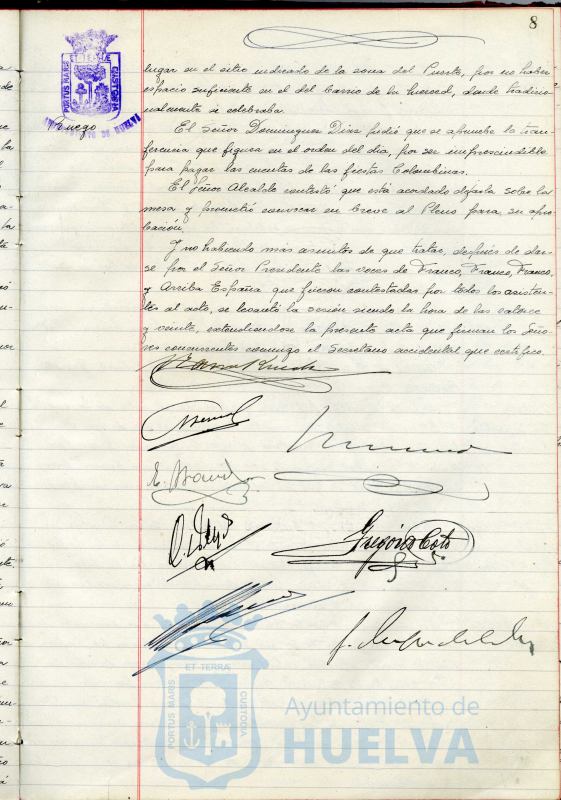 8
PORTUS MARIS ET TERRÆ CUSTODIA
AYUNTAMIENTO DE HUELVA
Ruego
lugar en el sitio indicado de la zona del Puerto, por no haber
espacio suficiente en el del barrio de la Merced, donde tradicio-
nalmente se celebraba.
El Señor Dominguez Diaz pidió que se apruebe la trans-
ferencia que figura en el orden del día, por ser imprescindible
para pagar las cuentas de las fiestas Colombinas.
El Señor Alcalde contestó que está acordado dejarla sobre la
mesa y prometió convocar en breve al Pleno para su apro-
bación.
Y no habiendo más asuntos de que tratar, después de dar-
se por el Señor Presidente las voces de Franco, Franco, Franco,
y Arriba España que fueron contestadas por todos los asisten-
tes al acto, se levantó la sesión siendo la hora de las catorce
y veinte, extendiendose la presente acta que firman los Seño-
res concurrentes conmigo el Secretario accidental que certifico.
Gregorio Coto
PORTUS MARIS ET TERRÆ CUSTODIA
Ayuntamiento de
HUELVA